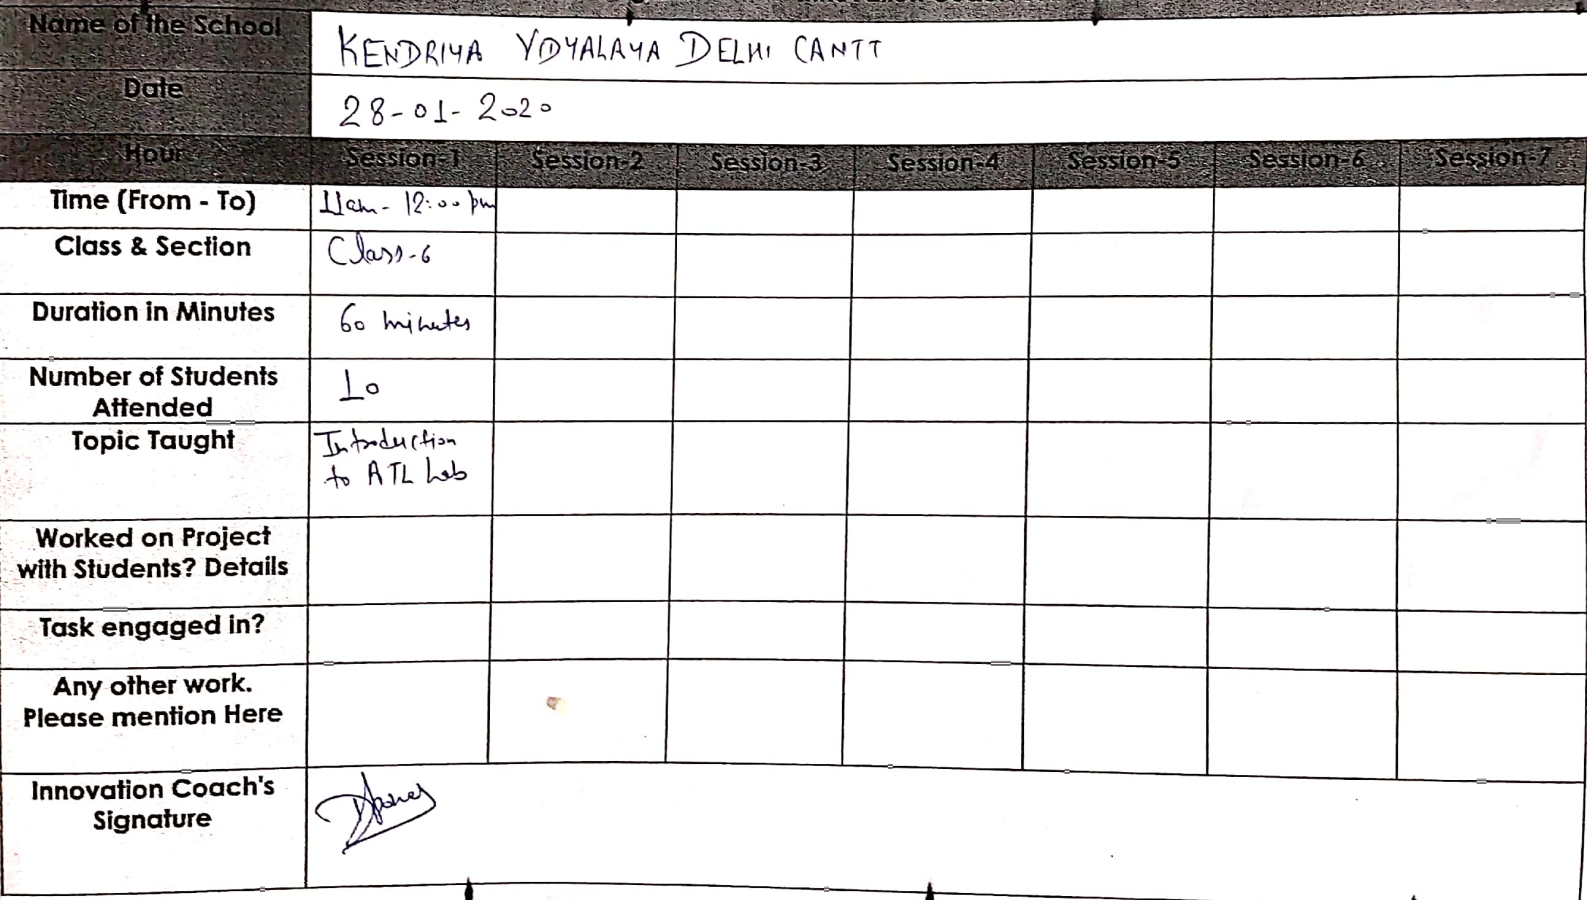 Name of the School KENDRIYA VIDYALAYA DELHI CANTT
Date 28-01-2020
Hour Session-1 Session-2 Session-3 Session-4 Session-5 Session-6 Session-7
Time (From - To) 11am - 12:00 pm
Class & Section Class-6
Duration in Minutes 60 minutes
Number of Students
Attended 10
Topic Taught Introduction
to ATL Lab
Worked on Project
with Students? Details
Task engaged in?
Any other work.
Please mention Here
Innovation Coach's
Signature